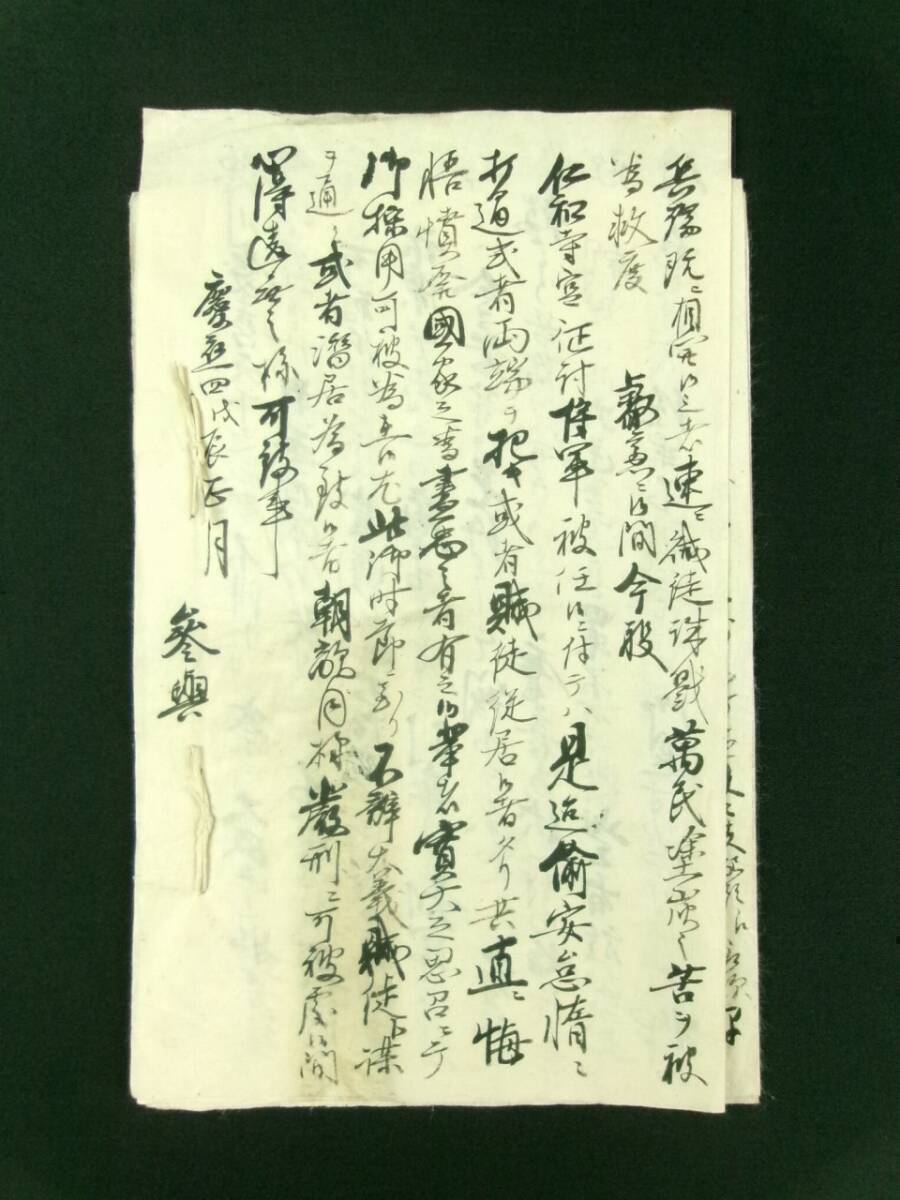 兵端既ニ相開候上者速ニ賊徒誅戮萬民塗炭之苦ヲ被
為救度 叡慮ニ候間今般
仁和寺宮征討将軍被任候ニ付テハ是迄偸安怠惰ニ
打過或者両端ヲ抱キ或者賊徒従居候者タリ共直ニ悔
悟憤発國家之為盡忠之者有之候輩者寛大之思召ニテ
御採用可被為在候尤此御時節ニ至リ不辨大義賊徒ト謀
ヲ通シ或者潜居為致候者朝敵同様嚴刑ニ可被處候間
心得違無之様可致事
慶應四戊辰正月
参與